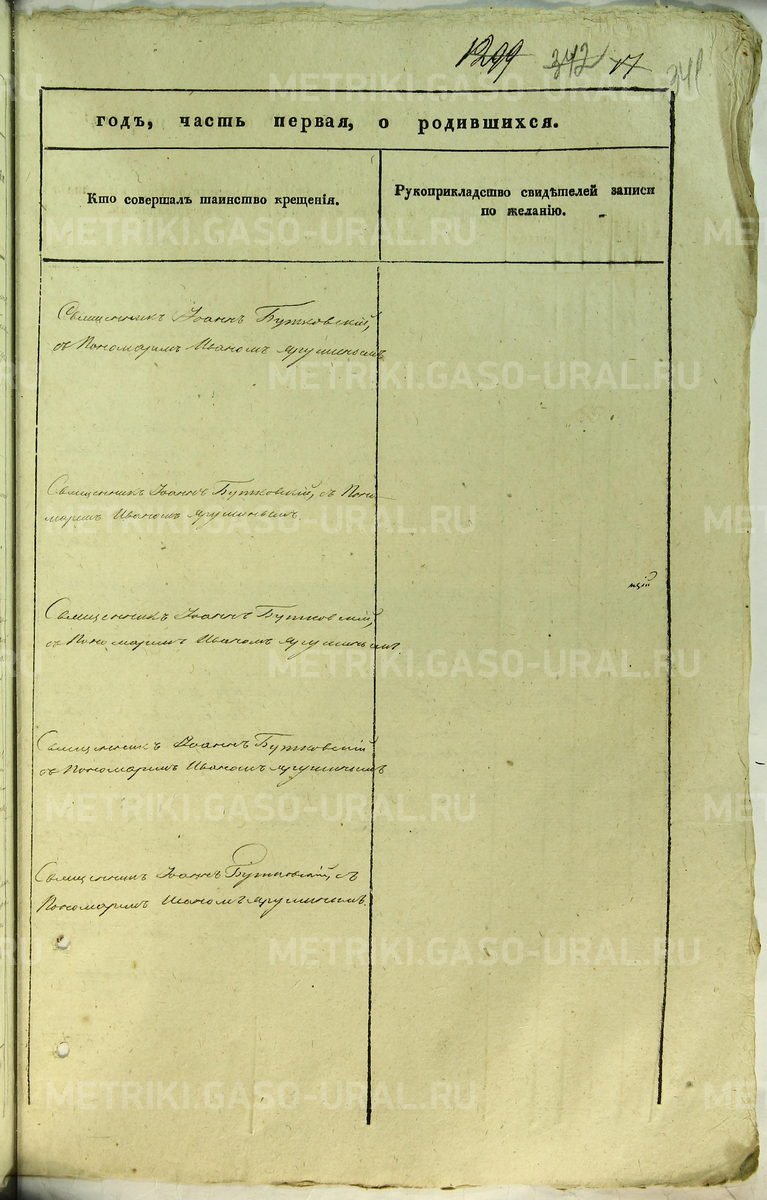 1299 342 17 341
годъ, часть первая, о родившихся.
Кто совершалъ таинство крещенія.
Рукоприкладство свидѣтелей записи
по желанію.
Священникъ Іоаннъ Бутковскій,
съ Пономаремъ Иваномъ Ярушинымъ
Священникъ Іоаннъ Бутковскій, съ Поно-
маремъ Иваномъ Ярушинымъ.
Священникъ Іоаннъ Бутковскій,
съ Пономаремъ Иваномъ Ярушинымъ
Священникъ Іоаннъ Бутковскій
съ Пономаремъ Иваномъ Ярушинымъ
Священникъ Іоаннъ Бутковскій, съ
Пономаремъ Иваномъ Ярушинымъ.
METRIKI.GASO-URAL.RU